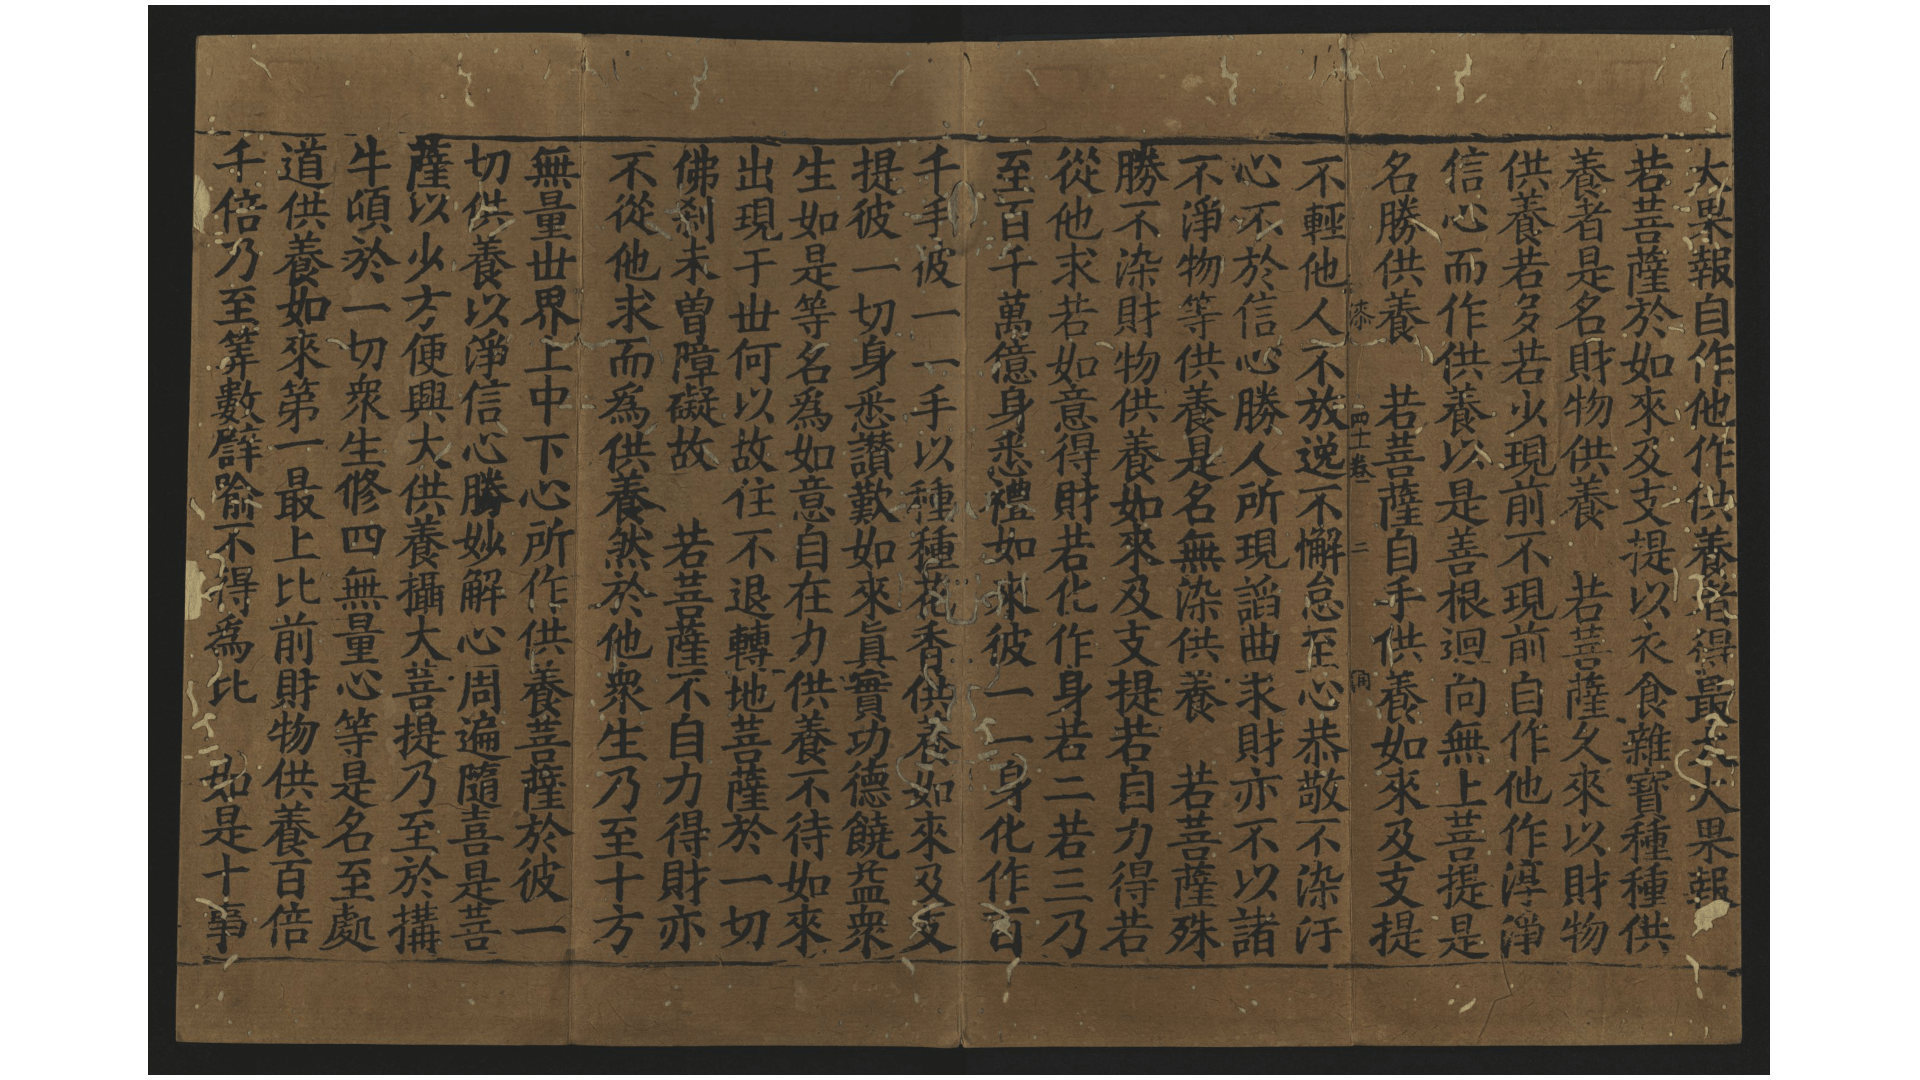 大果報自作他作供養者得最大大果報
若菩薩於如來及支提以衣食雜寶種種供
養者是名財物供養　若菩薩久來以財物
供養若多若少現前不現前自作他作淳淨
信心而作供養以是善根迴向無上菩提是
名勝供養　若菩薩自手供養如來及支提
漆　四十卷　二
不輕他人不放逸不懈怠至心恭敬不染汙
心不於信心勝人所現謟曲求財亦不以諸
不淨物等供養是名無染供養　若菩薩殊
勝不染財物供養如來及支提若自力得若
從他求若如意得財若化作身若二若三乃
至百千萬億身悉禮如來彼一一身化作百
千手彼一一手以種種花香供養如來及支
提彼一切身悉讃歎如來真實功德饒益衆
生如是等名爲如意自在力供養不待如來
出現于世何以故住不退轉地菩薩於一切
佛刹未曾障礙故　若菩薩不自力得財亦
不從他求而爲供養然於他衆生乃至十方
無量世界上中下心所作供養菩薩於彼一
切供養以淨信心勝妙解心周遍隨喜是菩
薩以少方便興大供養攝大菩提乃至於搆
牛頃於一切衆生修四無量心等是名至處
道供養如來第一最上比前財物供養百倍
千倍乃至筭數譬喻不得爲比　如是十事